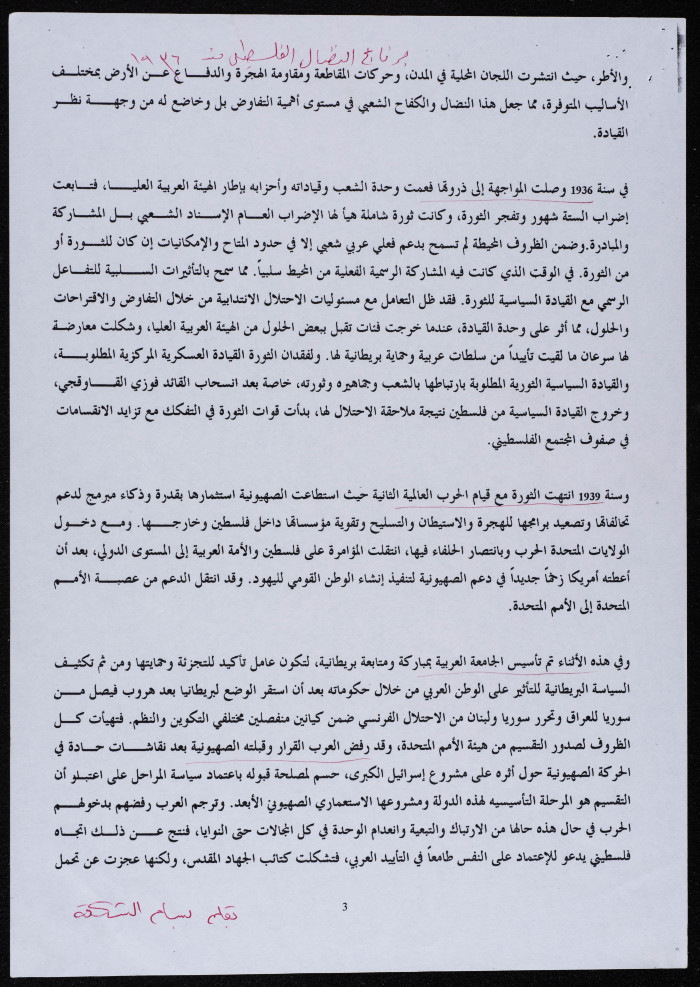 برنامج النضال الفلسطيني منذ ١٩٣٦
والأطر، حيث انتشرت اللجان المحلية في المدن، وحركات المقاطعة ومقاومة الهجرة والدفاع عن الأرض بمختلف
الأساليب المتوفرة، مما جعل هذا النضال والكفاح الشعبي في مستوى أهمية التفاوض بل وخاضع له من وجهة نظر
القيادة.
في سنة 1936 وصلت المواجهة إلى ذروتها فعمت وحدة الشعب وقياداته وأحزابه بإطار الهيئة العربية العليا، فتابعت
إضراب الستة شهور وتفجر الثورة، وكانت ثورة شاملة هيأ لها الإضراب العام الإسناد الشعبي بل المشاركة
والمبادرة. وضمن الظروف المحيطة لم تسمح بدعم فعلي عربي شعبي إلا في حدود المتاح والإمكانيات إن كان للثورة أو
من الثورة. في الوقت الذي كانت فيه المشاركة الرسمية الفعلية من المحيط سلبياً. مما سمح بالتأثيرات السلبية للتفاعل
الرسمي مع القيادة السياسية للثورة. فقد ظل التعامل مع مسئوليات الاحتلال الانتدابية من خلال التفاوض والاقتراحات
والحلول، مما أثر على وحدة القيادة، عندما خرجت فئات تقبل ببعض الحلول من الهيئة العربية العليا، وشكلت معارضة
لها سرعان ما لقيت تأييداً من سلطات عربية وحماية بريطانية لها. ولفقدان الثورة القيادة العسكرية المركزية المطلوبة،
والقيادة السياسية الثورية المطلوبة بارتباطها بالشعب وجماهيره وثورته، خاصة بعد انسحاب القائد فوزي القاوقجي،
وخروج القيادة السياسية من فلسطين نتيجة ملاحقة الاحتلال لها، بدأت قوات الثورة في التفكك مع تزايد الانقسامات
في صفوف المجتمع الفلسطيني.
وسنة 1939 انتهت الثورة مع قيام الحرب العالمية الثانية حيث استطاعت الصهيونية استثمارها بقدرة وذكاء مبرمج لدعم
تحالفاتها وتصعيد برامجها للهجرة والاستيطان والتسليح وتقوية مؤسساتها داخل فلسطين وخارجها. ومع دخول
الولايات المتحدة الحرب وبانتصار الحلفاء فيها، انتقلت المؤامرة على فلسطين والأمة العربية إلى المستوى الدولي، بعد أن
أعطته أمريكا زخماً جديداً في دعم الصهيونية لتنفيذ إنشاء الوطن القومي لليهود. وقد انتقل الدعم من عصبة الأمم
المتحدة إلى الأمم المتحدة.
وفي هذه الأثناء تم تأسيس الجامعة العربية بمباركة ومتابعة بريطانية، لتكون عامل تأكيد للتجزئة وحمايتها ومن ثم تكثيف
السياسة البريطانية للتأثير على الوطن العربي من خلال حكوماته بعد أن استقر الوضع لبريطانيا بعد هروب فيصل من
سوريا للعراق وتحرر سوريا ولبنان من الاحتلال الفرنسي ضمن كيانين منفصلين مختلفي التكوين والنظم. فتهيأت كل
الظروف لصدور التقسيم من هيئة الأمم المتحدة، وقد رفض العرب القرار وقبلته الصهيونية بعد نقاشات حادة في
الحركة الصهيونية حول أثره على مشروع إسرائيل الكبرى، حسم لمصلحة قبوله باعتماد سياسة المراحل على اعتبار أن
التقسيم هو المرحلة التأسيسيه لهذه الدولة ومشروعها الاستعماري الصهيوني الأبعد. وترجم العرب رفضهم بدخولهم
الحرب في حال هذه حالها من الارتباك والتبعية وانعدام الوحدة في كل المجالات حتى النوايا، فنتج عن ذلك اتجاه
فلسطيني يدعو للإعتماد على النفس طامعاً في التأييد العربي، فتشكلت كتائب الجهاد المقدس، ولكنها عجزت عن تحمل
3
بقلم بسام الشكعة